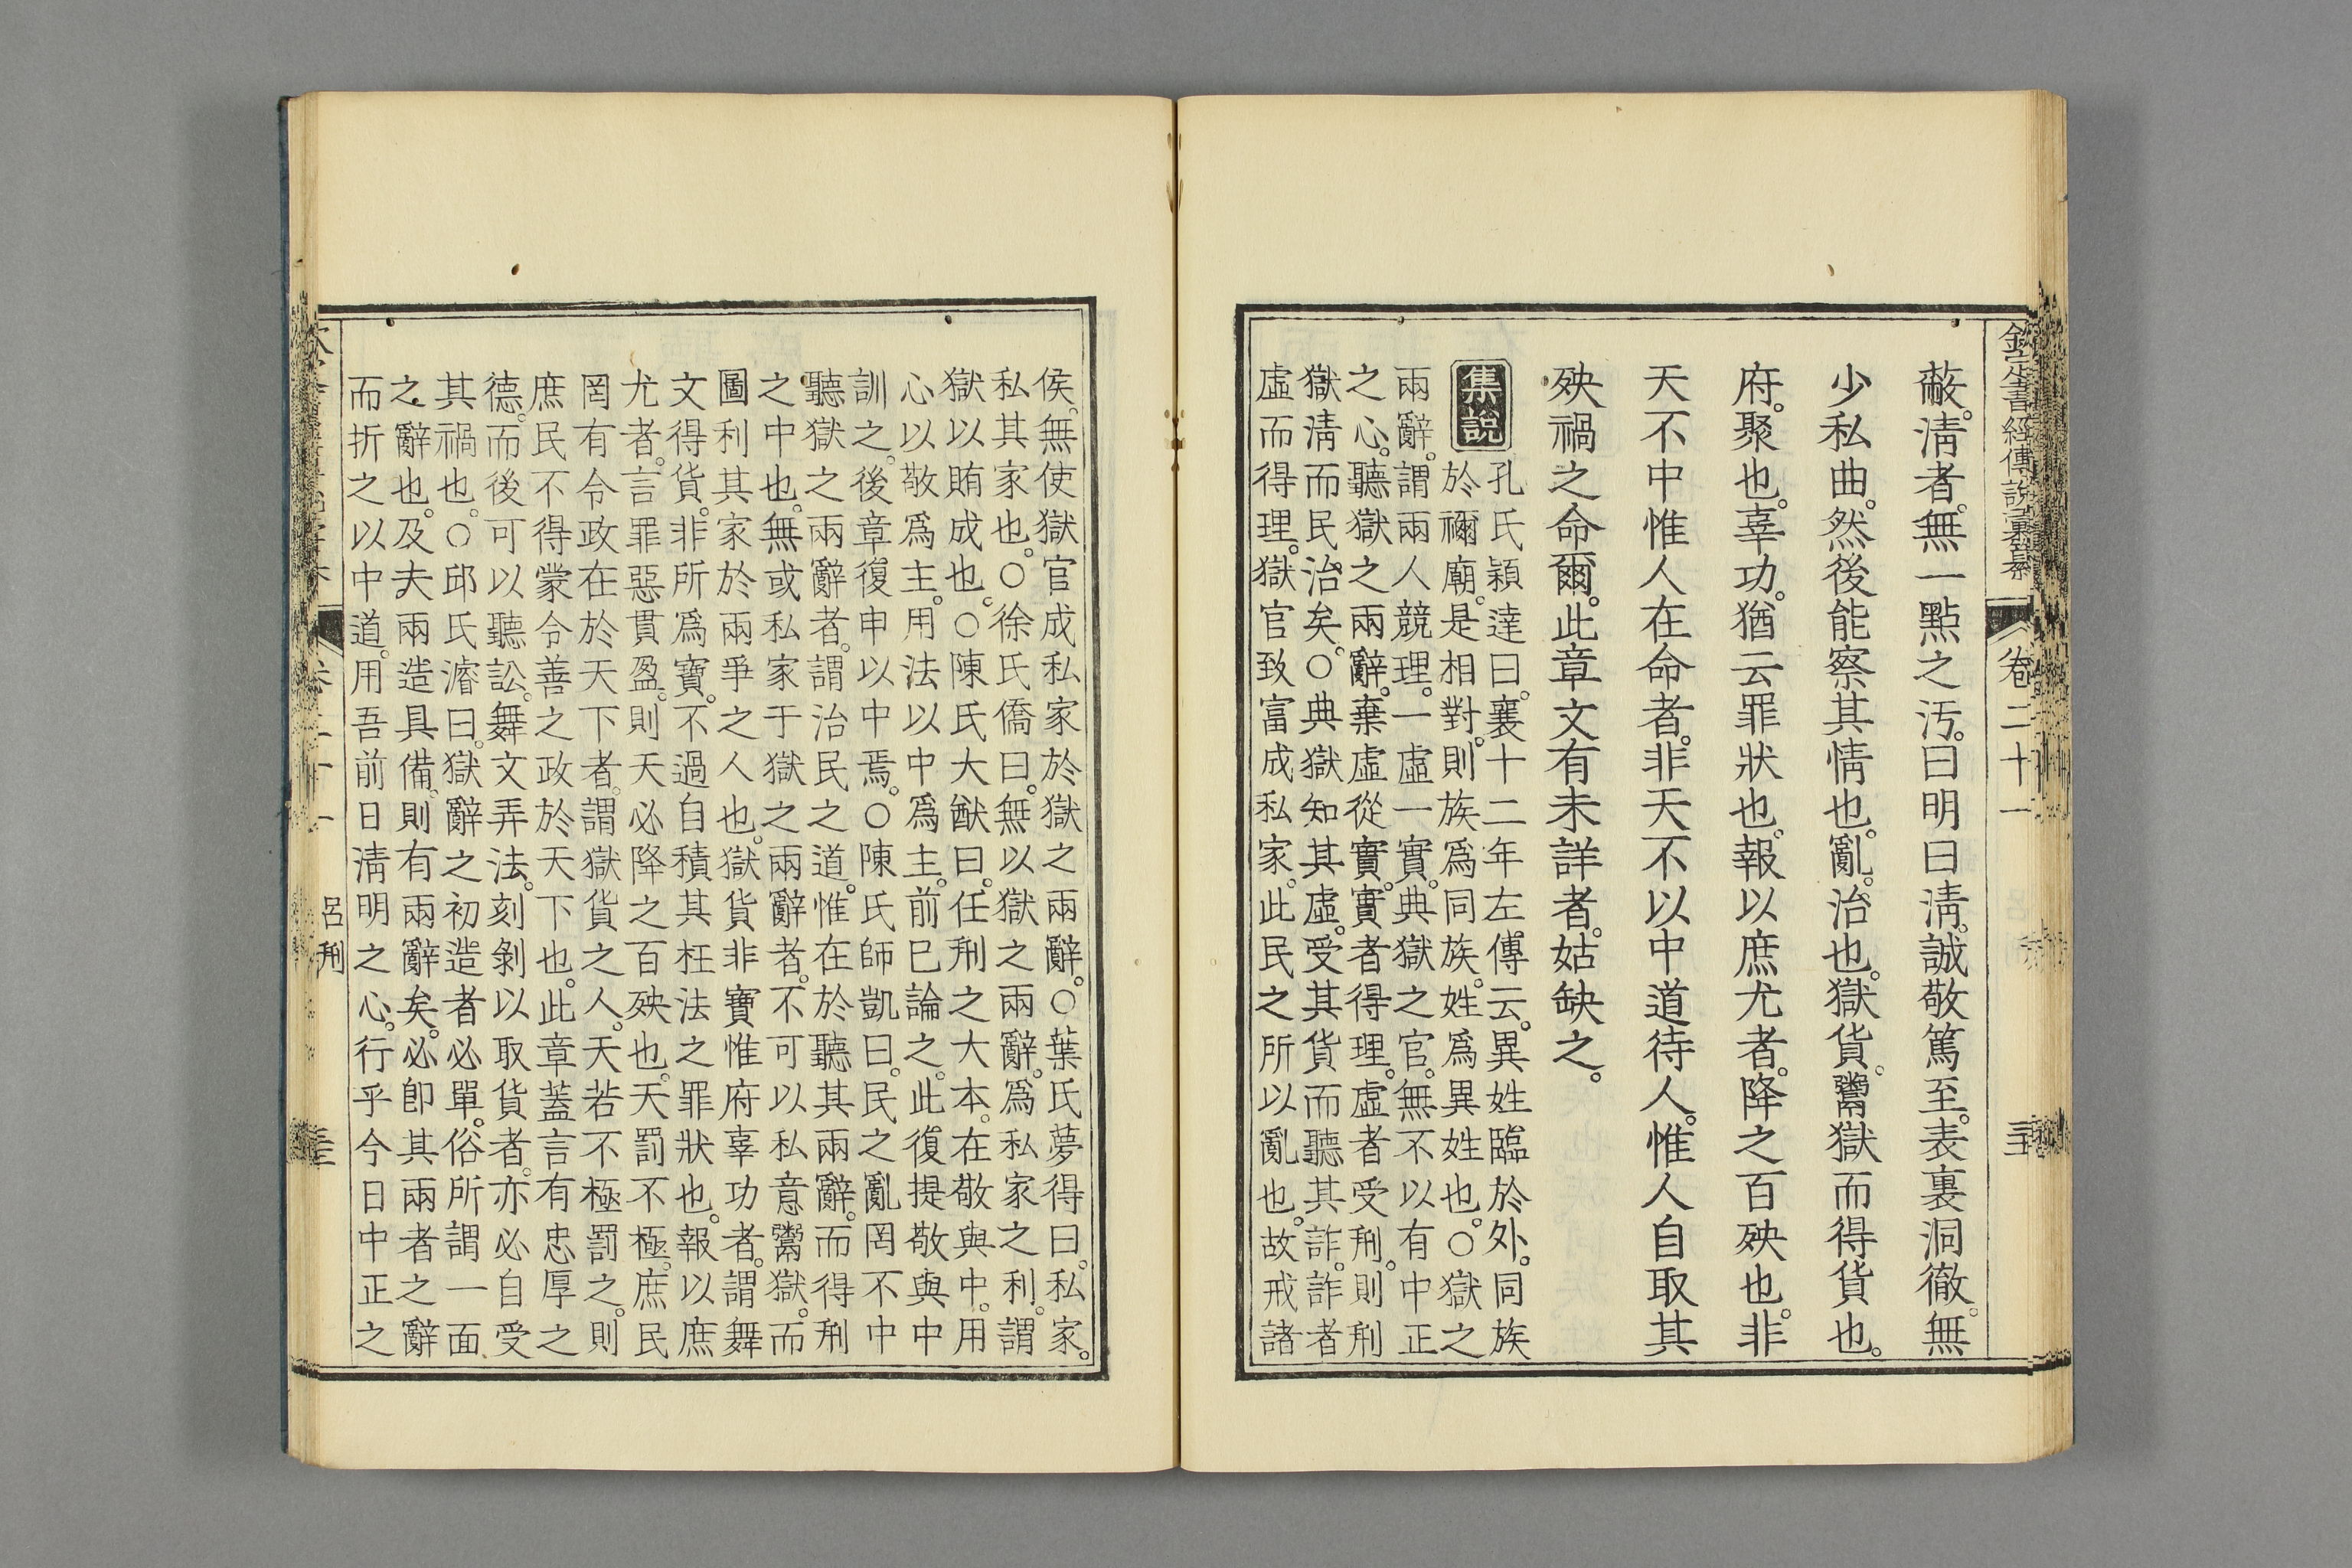 欽定書經傳說彙纂
卷二十一
蔽。淸者。無一點之汚。曰明曰淸。誠敬篤至。表裏洞徹。無
少私曲。然後能察其情也。亂。治也。獄貨。鬻獄而得貨也。
府。聚也。辜功。猶云罪狀也。報以庶尤者。降之百殃也。非
天不中惟人在命者。非天不以中道待人。惟人自取其
殃禍之命爾。此章文有未詳者。姑缺之。
集說
孔氏穎達曰。襄十二年左傳云。異姓臨於外。同族
於禰廟。是相對。則族爲同族。姓爲異姓也。○獄之
兩辭。謂兩人競理。一虛一實。典獄之官。無不以有中正
之心。聽獄之兩辭。棄虛從實。實者得理。虛者受刑。則刑
獄淸而民治矣。○典獄知其虛。受其貨而聽其詐。詐者
虛而得理。獄官致富成私家。此民之所以亂也。故戒諸
侯。無使獄官成私家於獄之兩辭。○葉氏夢得曰。私家。
私其家也。○徐氏僑曰。無以獄之兩辭。爲私家之利。謂
獄以賄成也。○陳氏大猷曰。任刑之大本。在敬與中。用
心以敬爲主。用法以中爲主。前已論之。此復提敬與中
訓之。後章復申以中焉。○陳氏師凱曰。民之亂罔不中
聽獄之兩辭者。謂治民之道。惟在於聽其兩辭。而得刑
之中也。無或私家于獄之兩辭者。不可以私意鬻獄。而
圖利其家於兩爭之人也。獄貨非寶惟府辜功者。謂舞
文得貨。非所爲寶。不過自積其枉法之罪狀也。報以庶
尤者。言罪惡貫盈。則天必降之百殃也。天罰不極。庶民
罔有令政在於天下者。謂獄貨之人。天若不極罰之。則
庶民不得蒙令善之政於天下也。此章蓋言有忠厚之
德。而後可以聽訟。舞文弄法。刻剝以取貨者。亦必自受
其禍也。○邱氏濬曰。獄辭之初造者必單。俗所謂一面
之辭也。及夫兩造具備。則有兩辭矣。必卽其兩者之辭
而折之以中道。用吾前日淸明之心。行乎今日中正之
呂刑